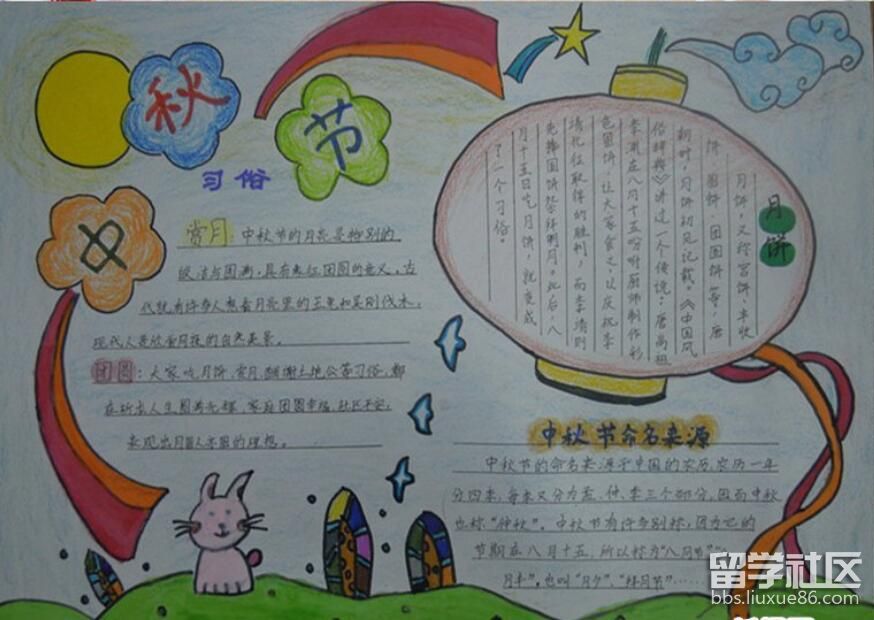 中秋节
习俗
赏月：中秋节的月亮是特别的
皎洁与圆满，具有象征团圆的意义。古
代就有许多人想着月亮里的玉兔和吴刚伐木，
现代人是欣着月夜的自然美景。
团圆：大家吃月饼、赏月、酬谢土地公等习俗，都
在祈求人生圆满无缺，家庭团圆幸福，社区平安，
表现出月圆人亦圆的理想。
月饼
月饼，又称宫饼、丰收
饼、圆饼、团圆饼等，唐
朝时，月饼初见记载。《中国风
俗辞典》讲过一个传说：唐高祖
李渊在八月十五吩咐厨师制作彩
色圆饼，让大家食之，以庆祝李
靖北征取得的胜利，而李靖则
先捧圆饼祭拜明月。此后，八
月十五日吃月饼，就变成
了一个习俗。
中秋节命名来源
中秋节的命名来源于中国的农历，农历一年
分四季，每季又分为孟、仲、季三个部分，因而中秋
也称“仲秋”。中秋节有许多别称，因为它的
节期在八月十五，所以称为“八月节”
月半”，也叫“月夕”、“拜月节”……
留学社区
bbs.liuxue86.com